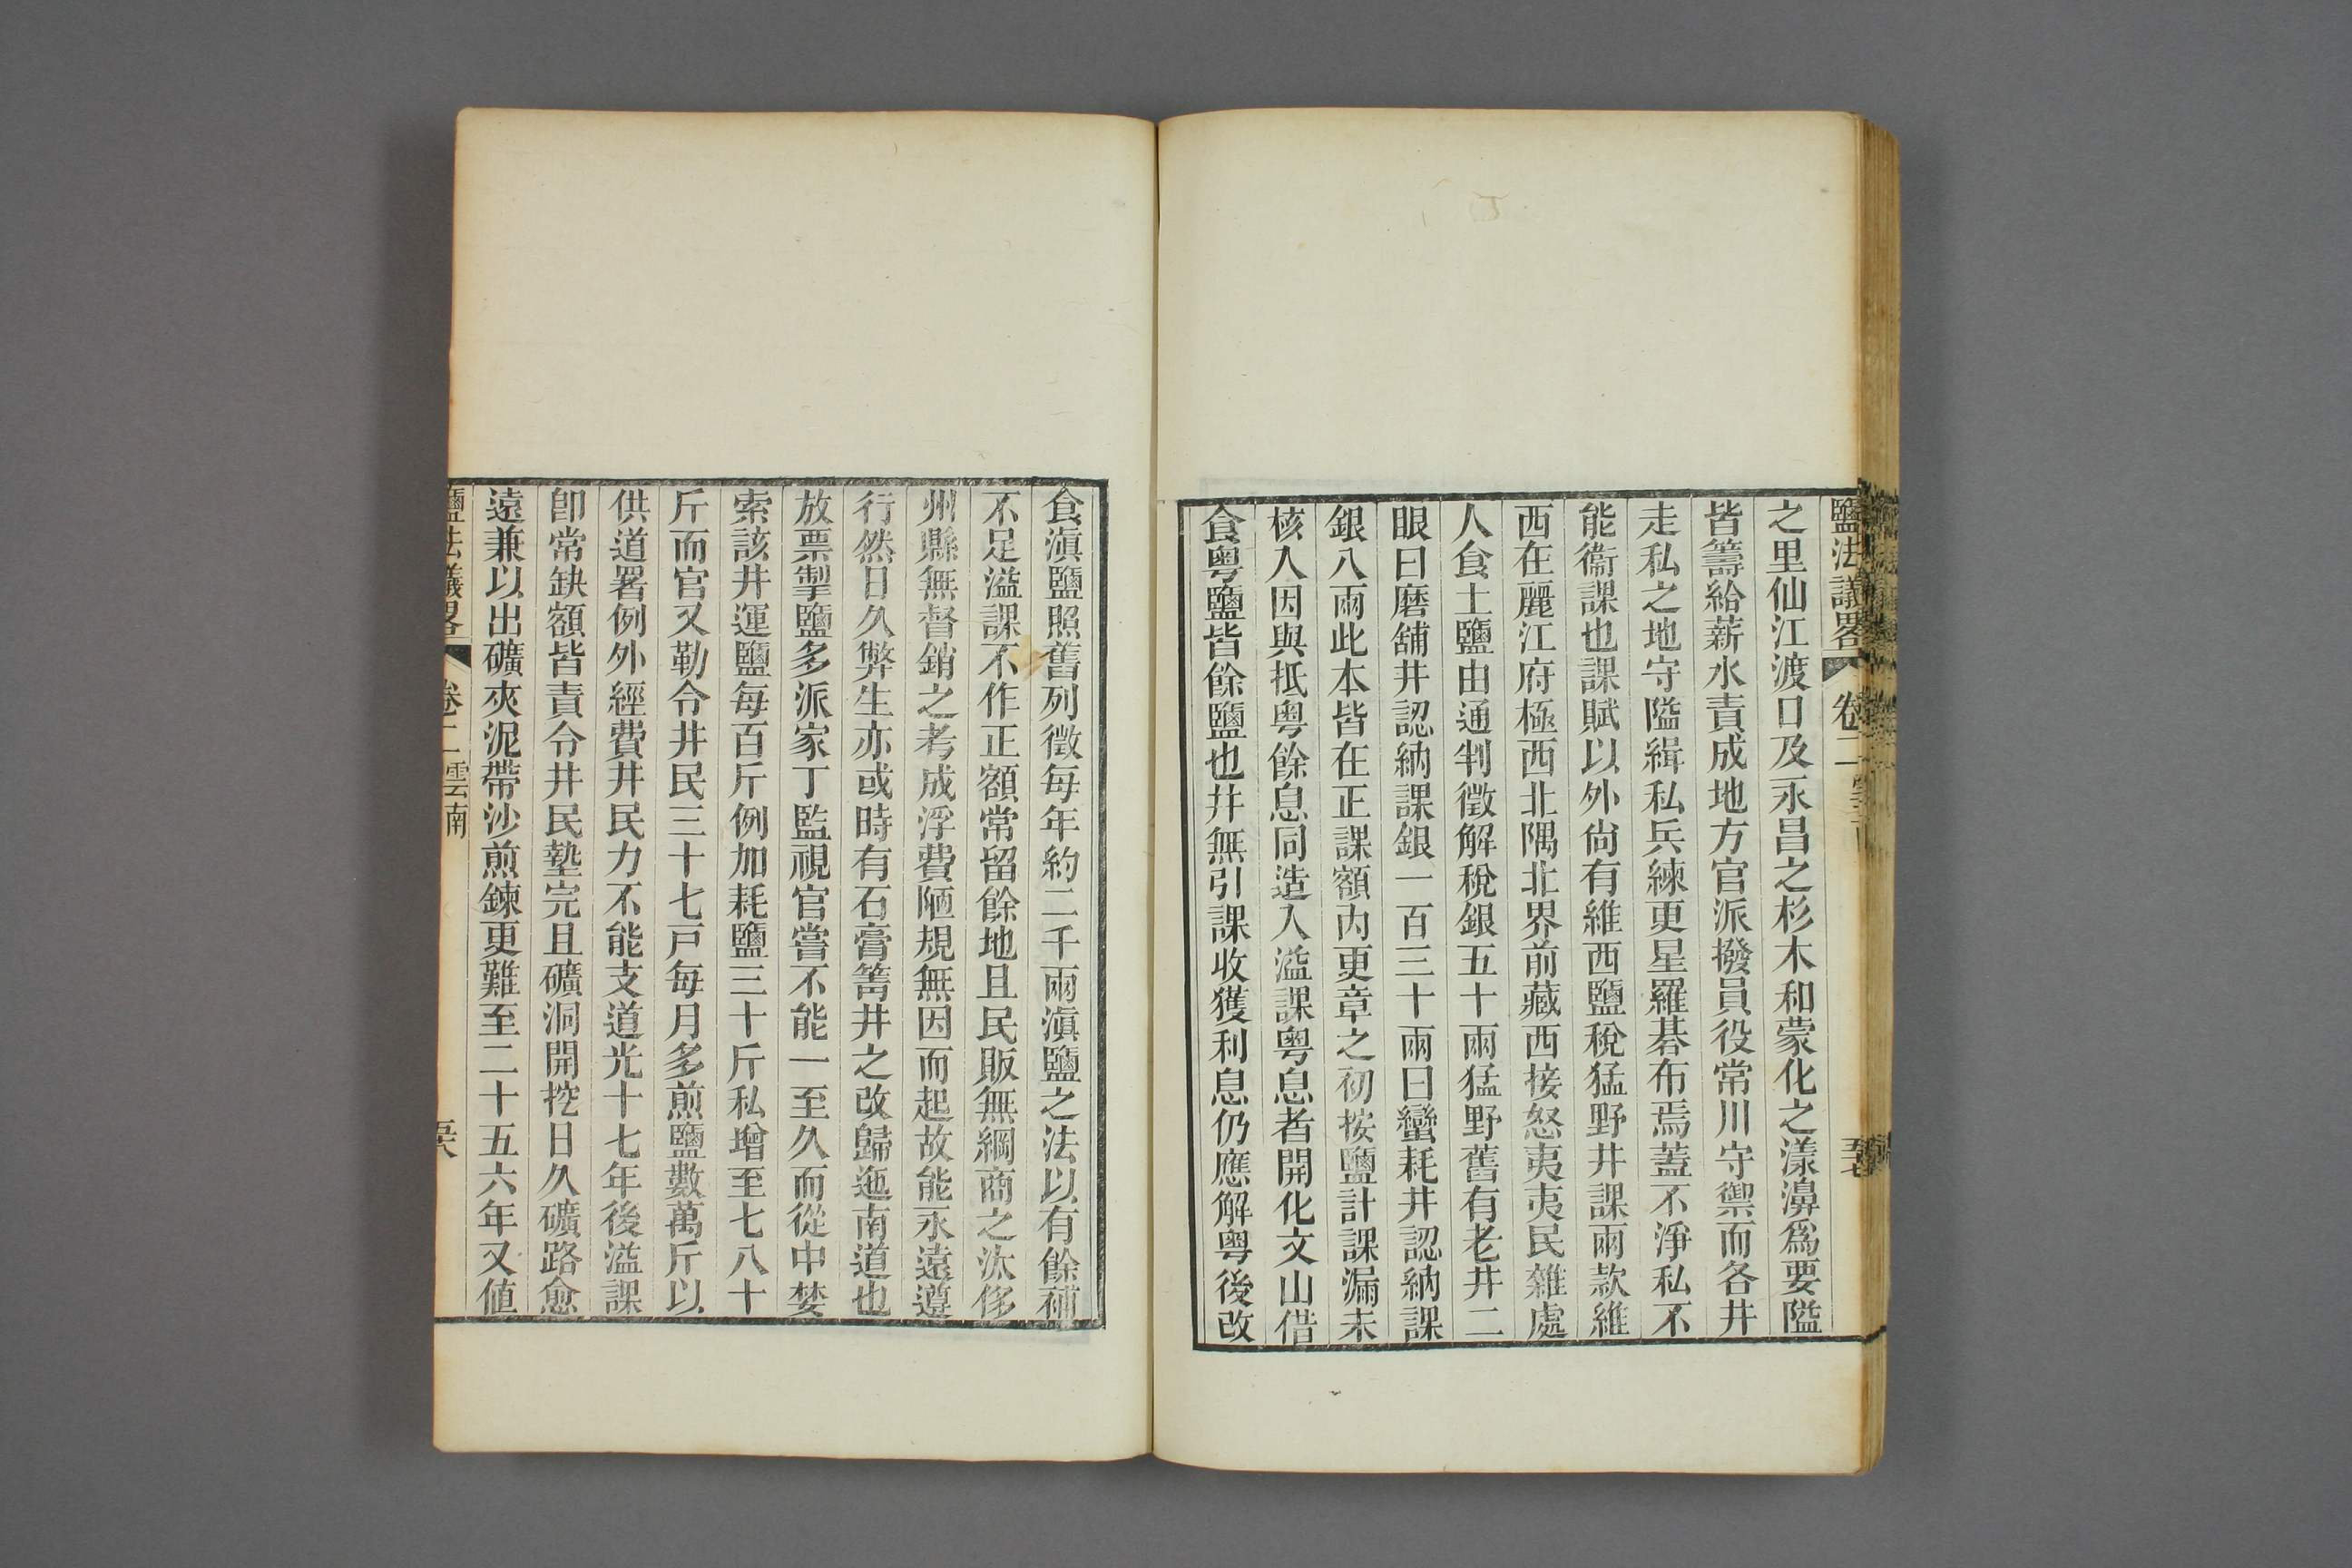 鹽法議畧 卷二
之里仙江渡口及永昌之杉木和蒙化之漾濞爲要隘
皆籌給薪水責成地方官派撥員役常川守禦而各井
走私之地守隘緝私兵練更星羅碁布焉蓋不淨私不
能衞課也課賦以外尙有維西鹽稅猛野井課兩款維
西在麗江府極西北隅北界前藏西接怒夷夷民雜處
人食土鹽由通判徵解稅銀五十兩猛野舊有老井二
眼曰磨舖井認納課銀一百三十兩曰蠻耗井認納課
銀八兩此本皆在正課額內更章之初按鹽計課漏未
核入因與抵粵餘息同造入溢課粵息者開化文山借
食粵鹽皆餘鹽也井無引課收獲利息仍應解粵後改
食滇鹽照舊列徵每年約二千兩滇鹽之法以有餘補
不足溢課不作正額常留餘地且民販無綱商之汰侈
州縣無督銷之考成浮費陋規無因而起故能永遠遵
行然日久弊生亦或時有石膏箐井之改歸迤南道也
放票掣鹽多派家丁監視官嘗不能一至久而從中婪
索該井運鹽每百斤例加耗鹽三十斤私增至七八十
斤而官又勒令井民三十七戸每月多煎鹽數萬斤以
供道署例外經費井民力不能支道光十七年後溢課
卽常缺額皆責令井民墊完且礦洞開挖日久礦路愈
遠兼以出礦夾泥帶沙煎鍊更難至二十五六年又値
鹽法議畧 卷二 雲南